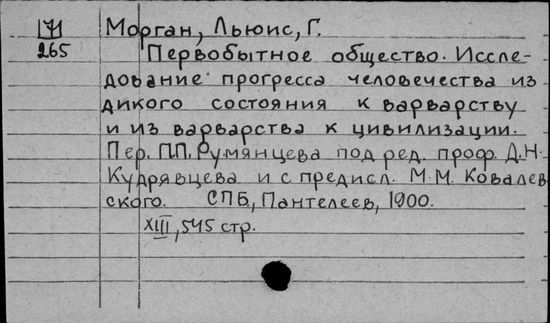 171 Морган, Льюис, Г.
265 Первобытное общество. Иссле-
дование прогресса человечества из
дикого состояния к варварству
и из варварства к цивилизации.
Пер. П.П. Румянцева под ред. проф. Д.Н.
Кудрявцева и с предисл. М.М. Ковалев
ского. СПБ, Пантелеев, 1900.
XIII, 545 стр.